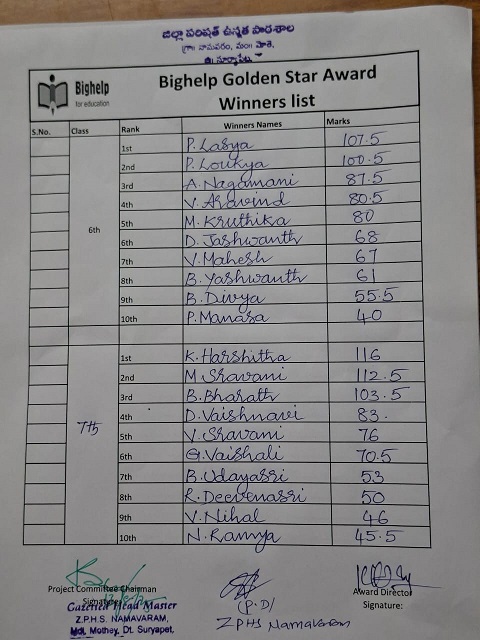 జిల్లా పరిషత్ ఉన్నత పాఠశాల
గ్రా॥ నామవరం, మం॥ మోతె,
జి॥ సూర్యాపేట.
Bighelp
for education
Bighelp Golden Star Award
Winners list
S.No. Class Rank Winners Names Marks
6th
1st P. Lasya 107.5
2nd P. Loukya 100.5
3rd A. Nagamani 87.5
4th V. Aravind 80.5
5th M. Kruthika 80
6th D. Jashwanth 68
7th V. Mahesh 67
8th B. Yashwanth 61
9th B. Divya 55.5
10th P. Manasa 40
7th
1st K. Harshitha 116
2nd M. Sravani 112.5
3rd B. Bharath 103.5
4th D. Vaishnavi 83.
5th V. Sravani 76
6th G. Vaishali 70.5
7th B. Udayasri 53
8th R. Deevenasri 50
9th V. Nihal 46
10th N. Ramya 45.5
Project Committee Chairman
Signature:
Gazetted Head Master
Z.P.H.S. NAMAVARAM,
Mdl, Mothey, Dt. Suryapet,
(P.D)
ZPHS Namavaram
Award Director
Signature: